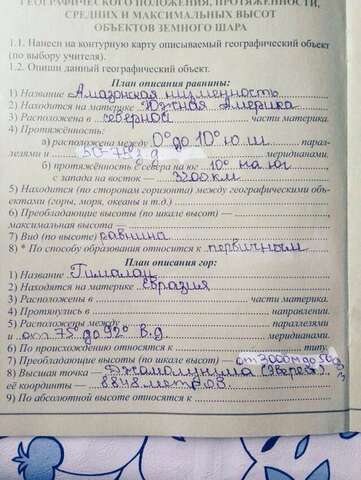 ГЕОГРАФИЧЕСКОГО ПОЛОЖЕНИЯ, ПРОТЯЖЕННОСТИ,
СРЕДНИХ И МАКСИМАЛЬНЫХ ВЫСОТ
ОБЪЕКТОВ ЗЕМНОГО ШАРА
1.1. Нанеси на контурную карту описываемый географический объект
(по выбору учителя).
1.2. Опиши данный географический объект.
План описания равнины:
1) Название Амазонская низменность
2) Находится на материке Южная Америка
3) Расположена в северной части материка.
4) Протяжённость:
а) расположена между 0° до 10° ю.ш парал-
лелями и 50-78° з.д меридианами.
б) протяжённость с севера на юг 10° на юг
с запада на восток — 3200км
5) Находится (по сторонам горизонта) между географическими объ-
ектами (горы, моря, океаны и т.д.)
6) Преобладающие высоты (по шкале высот) —
максимальная высота —
7) Вид (по высоте) равнина
8) * По способу образования относится к первичным
План описания гор:
1) Название Гималаи
2) Находятся на материке Евразия
3) Расположены в части материка.
4) Протянулись в направлении.
5) Расположены между параллелями
и от 73° до 92° в.д меридианами.
6) По происхождению относятся к типу.
7) Преобладающие высоты (по шкале высот) — от 3000м до
8) Высшая точка — Джомолунгма (Эверест).
её координаты — 8848 метров.
9) По абсолютной высоте относятся к